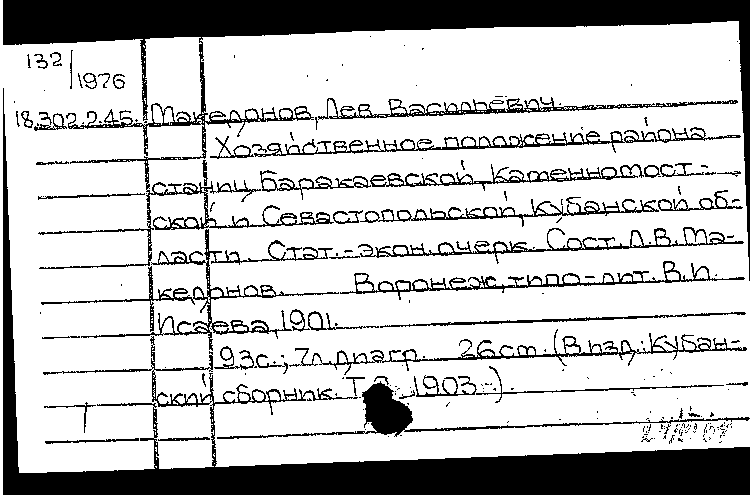 132/1976
18.302.2.45. Македонов, Лев Васильевич.
Хозяйственное положение района
станиц Баракаевской, Каменномост-
ской и Севастопольской, Кубанской об-
ласти. Стат.-экон. очерк. Сост. Л.В. Ма-
кедонов. Воронеж, типо-лит. В.И.
Исаева, 1901.
93с.; 7л. диагр. 26см. (В изд.: Кубан-
ский сборник. Т. 1903.-).